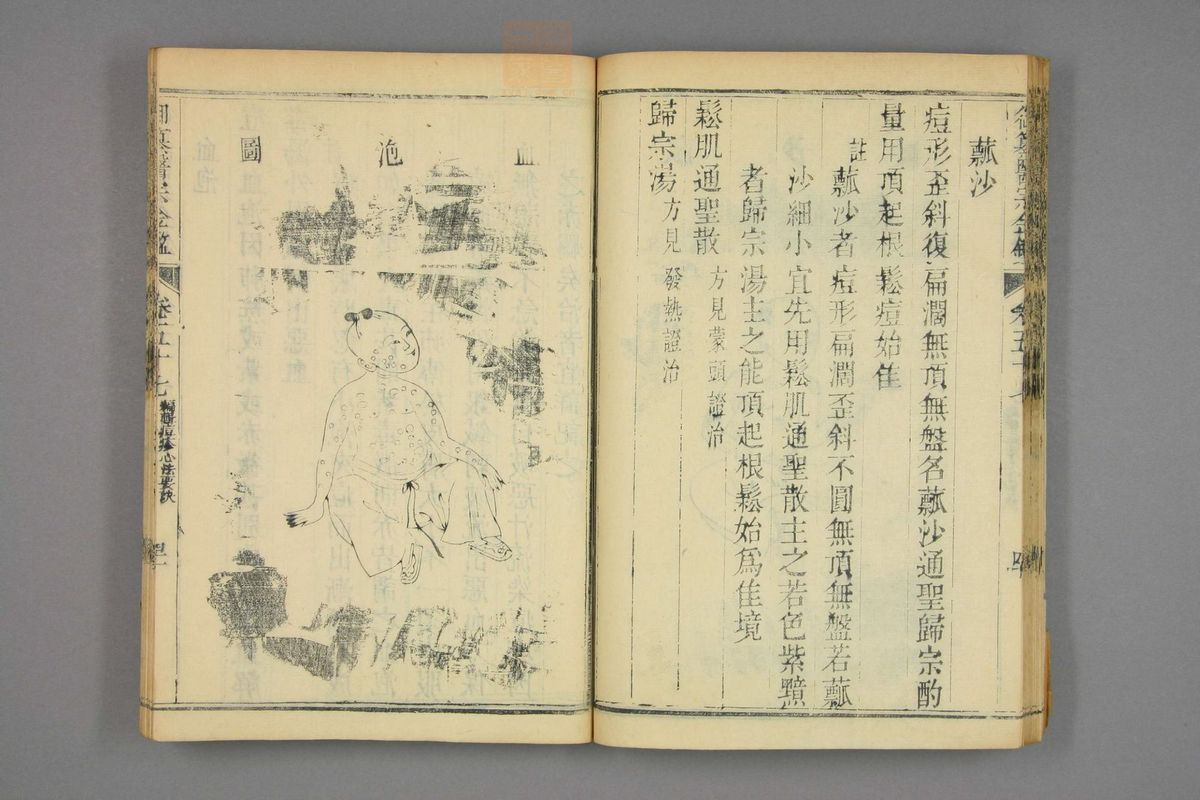 瓤沙
痘形歪斜復扁濶無頂無盤名瓤沙通聖歸宗酌
量用頂起根鬆痘始佳
註 瓤沙者痘形扁濶歪斜不圓無頂無盤若瓤
沙細小宜先用鬆肌通聖散主之若色紫黯
者歸宗湯主之能頂起根鬆始爲佳境
鬆肌通聖散 方見蒙頭證治
歸宗湯 方見發熱證治
血泡圖
御纂醫宗金鑑
卷五十七
編輯痘疹心法要訣